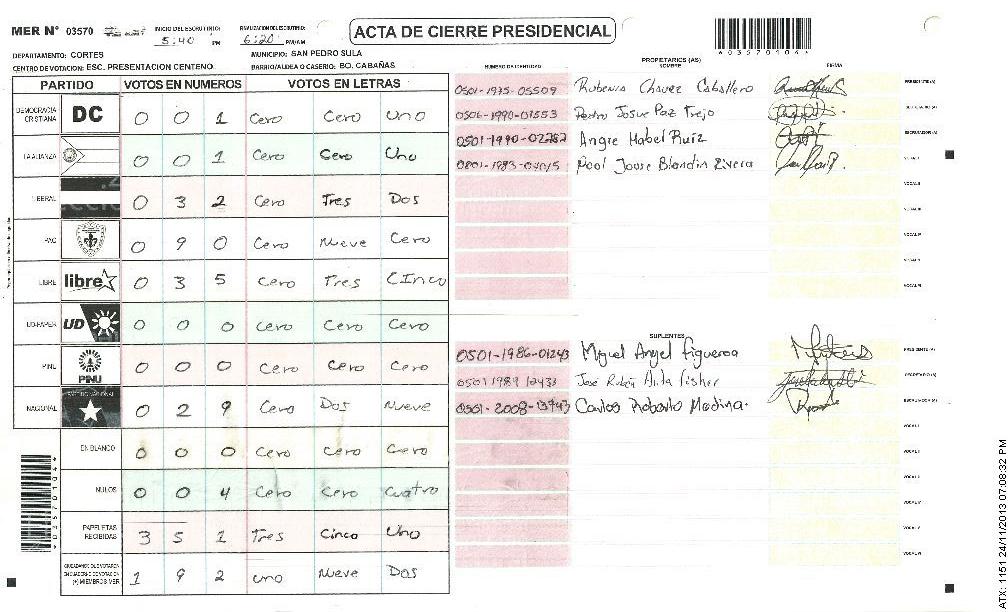 MER N° 03570
INICIO DEL ESCRUTINIO: 5:40 PM
FINALIZACION DEL ESCRUTINIO: 6:20 PM/AM
ACTA DE CIERRE PRESIDENCIAL
03570104
DEPARTAMENTO: CORTES
MUNICIPIO: SAN PEDRO SULA
CENTRO DE VOTACION: ESC. PRESENTACION CENTENO
BARRIO/ALDEA O CASERIO: BO. CABAÑAS
PARTIDO VOTOS EN NUMEROS VOTOS EN LETRAS
DEMOCRACIA CRISTIANA DC 0 0 1 Cero Cero Uno
LA ALIANZA 0 0 1 Cero Cero Uno
LIBERAL 0 3 2 Cero Tres Dos
PAC 0 9 0 Cero Nueve Cero
LIBRE libre 0 3 5 Cero Tres Cinco
UD-FAPER UD 0 0 0 Cero Cero Cero
PINU PINU 0 0 0 Cero Cero Cero
NACIONAL PARTIDO NACIONAL 0 2 9 Cero Dos Nueve
EN BLANCO 0 0 0 Cero Cero Cero
NULOS 0 0 4 Cero Cero Cuatro
PAPELETAS RECIBIDAS 3 5 1 Tres Cinco Uno
CIUDADANOS QUE VOTARON EN CUADERNO DE VOTACION (+) MIEMBROS MER 1 9 2 uno Nueve Dos
03570104
PROPIETARIOS (AS)
NUMERO DE IDENTIDAD NOMBRE FIRMA
0501-1975-05509 Chavez Caballero PRESIDENTE (A)
0506-1990-01553 Pedro Josue Paz Trejo SECRETARIO (A)
0501-1990-02762 Angie Mabel Ruiz ESCRUTADOR (A)
Blandin Rivera VOCAL I
VOCAL II
VOCAL III
VOCAL IV
VOCAL V
VOCAL VI
SUPLENTES
0501-1986-01243 Miguel Angel Figueroa PRESIDENTE (A)
0501 1989 12433 José Rubén Fisher SECRETARIO (A)
0501-2008-13743 Carlos Roberto Medina. ESCRUTADOR (A)
VOCAL I
VOCAL II
VOCAL III
VOCAL IV
VOCAL V
VOCAL VI
ATX: 1151 24/11/2013 07:08:32 PM